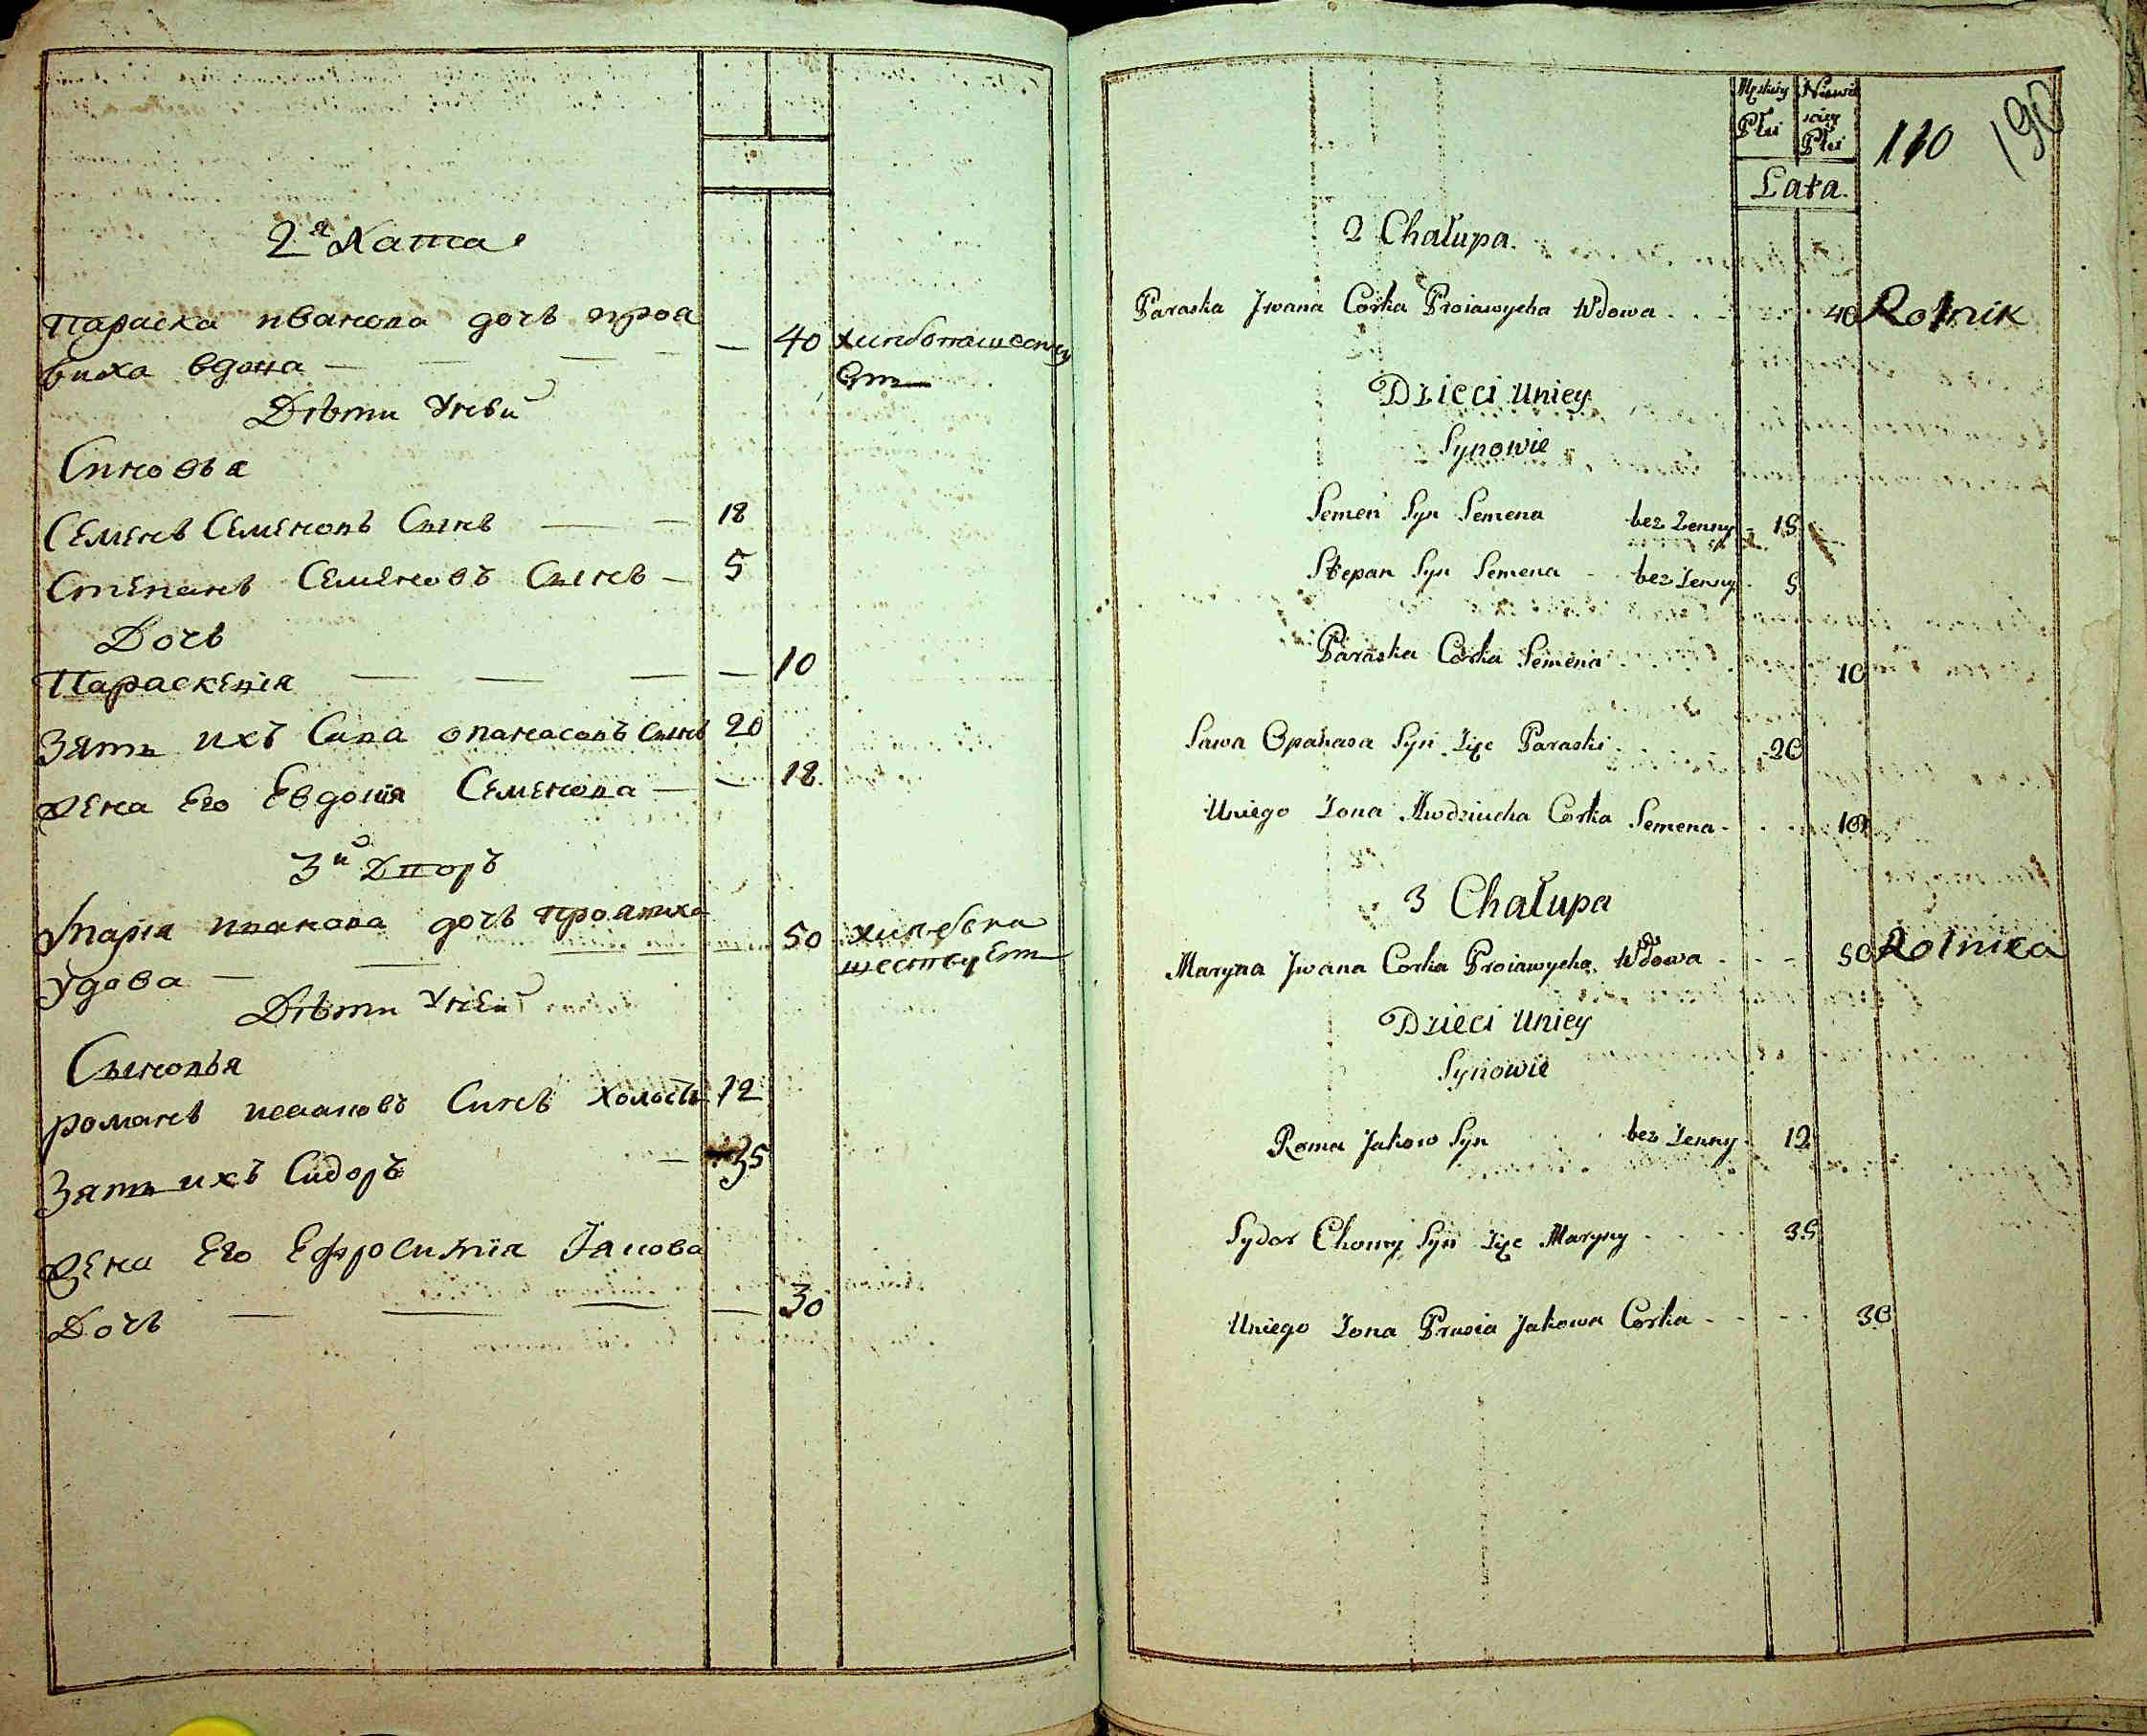 2я Хата
Параска иванова дочь проя
виха вдова — 40 хлебопашеству
ет
Дѣти Унеи
Синовья
Семенъ Семеновъ Сынъ — 18
Степанъ Семеновъ Сынъ — 5
Дочь
Параскевія — 10
Зять ихъ Сава опанасовъ Сынъ 20
Жена Его Евдокія Семенова — 18
3й Дворъ
Марія иванова дочь Проявиха
Удова — 50 хлебопа
шествует
Дѣти Унеи
Сыновья
романъ Синъ холостъ 12
Зять ихъ Сидоръ — 35
Жена Его Ефросинія Јакова
Дочь — 30
Męskiey Płci
Niewieściey Płci
Lata.
110
190
2 Chałupa.
Paraska Jwana Corka Proiawycha Wdowa . . 40 Rolnik
Dzieci Uniey
Synowie
Semen Syn Semena bez Zenny - 18
Stepan Syn Semena - bez Zenny - 5
Paraska Corka Semena 10
Sawa Opanasa Syn Zięc Paraski . . . 20
Uniego Zona Awdziucha Corka Semena - 18
3 Chałupa
Maryna Jwana Corka Proiawycha Wdowa - - - 50 Rolnika
Dzieci Uniey
Synowie
Roma Jakow Syn bez Zenny - 12
Sydor Chomy Syn Zięc Maryny . . . . 35
Uniego Zona Prusia Jakowa Corka - - - 30